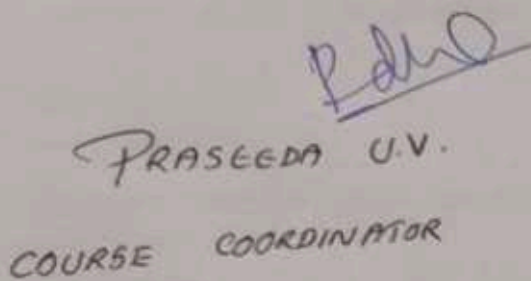 PRASEEDA U.V.
COURSE COORDINATOR